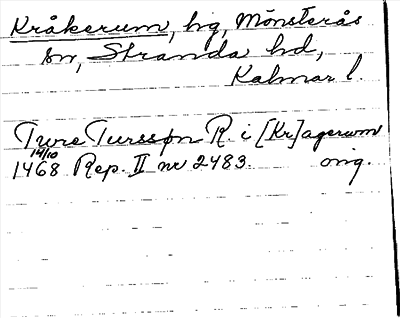 Kråkerum, hg, Mönsterås
sn, Stranda hd,
Kalmar l.
Ture Turssøn R. i [Kr]agerum
14/10
1468 Rep. II nr 2483. orig.